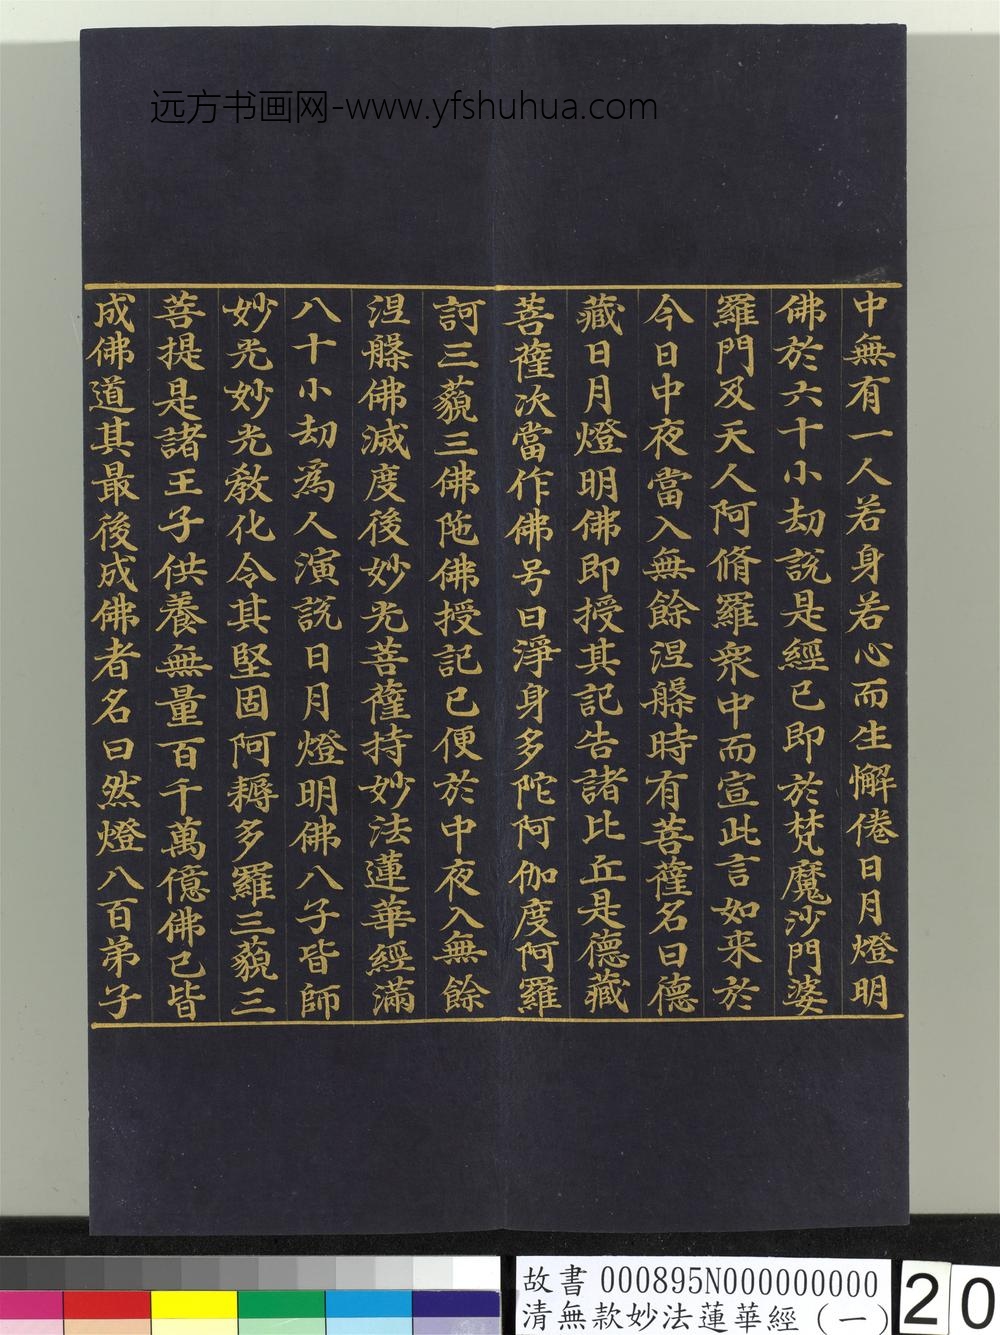 远方书画网-www.yfshuhua.com
中無有一人若身若心而生懈倦日月燈明
佛於六十小劫說是經已即於梵魔沙門婆
羅門及天人阿脩羅衆中而宣此言如来於
今日中夜當入無餘涅槃時有菩薩名曰德
藏日月燈明佛即授其記告諸比丘是德藏
菩薩次當作佛号曰淨身多陀阿伽度阿羅
訶三藐三佛陁佛授記已便於中夜入無餘
涅槃佛滅度後妙光菩薩持妙法蓮華經滿
八十小劫為人演說日月燈明佛八子皆師
妙光妙光教化令其堅固阿耨多羅三藐三
菩提是諸王子供養無量百千萬億佛已皆
成佛道其最後成佛者名曰然燈八百弟子
故書 000895N000000000
清無款妙法蓮華經（一）
20